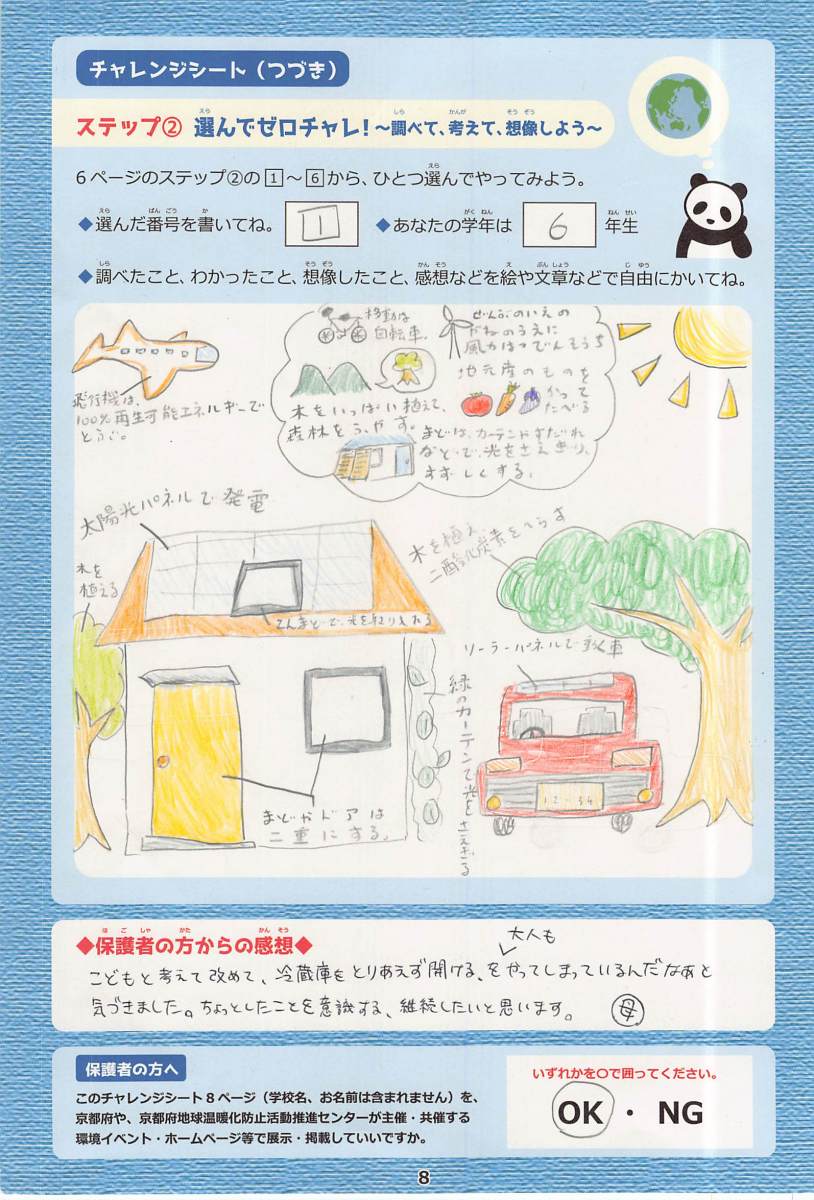 チャレンジシート（つづき）
ステップ② 選んでゼロチャレ！～調べて、考えて、想像しよう～
6ページのステップ②の1～6から、ひとつ選んでやってみよう。
◆選んだ番号を書いてね。 1 ◆あなたの学年は 6 年生
◆調べたこと、わかったこと、想像したこと、感想などを絵や文章などで自由にかいてね。
飛行機は、
100%再生可能エネルギーで
とぶ。
移動は
自転車。
ぜんぶのいえの
やねのうえに
風力はつでんそうち
地元産のものを
かって
たべる
木をいっぱい植えて、
森林をふやす。
まどは、カーテンやすだれ
などで、光をさえぎり、
すずしくする。
太陽光パネルで発電
木を
植える
てんまどで、光を取り入れる
木を植え、
二酸化炭素をへらす
ソーラーパネルで動く車
緑のカーテンで光をさえぎる
まどやドアは
二重にする。
12-34
◆保護者の方からの感想◆
大人も
こどもと考えて改めて、冷蔵庫をとりあえず開ける、をやってしまっているんだなあと
気づきました。ちょっとしたことを意識する、継続したいと思います。 母
保護者の方へ
このチャレンジシート8ページ（学校名、お名前は含まれません）を、
京都府や、京都府地球温暖化防止活動推進センターが主催・共催する
環境イベント・ホームページ等で展示・掲載していいですか。
いずれかを○で囲ってください。
OK ・ NG
8